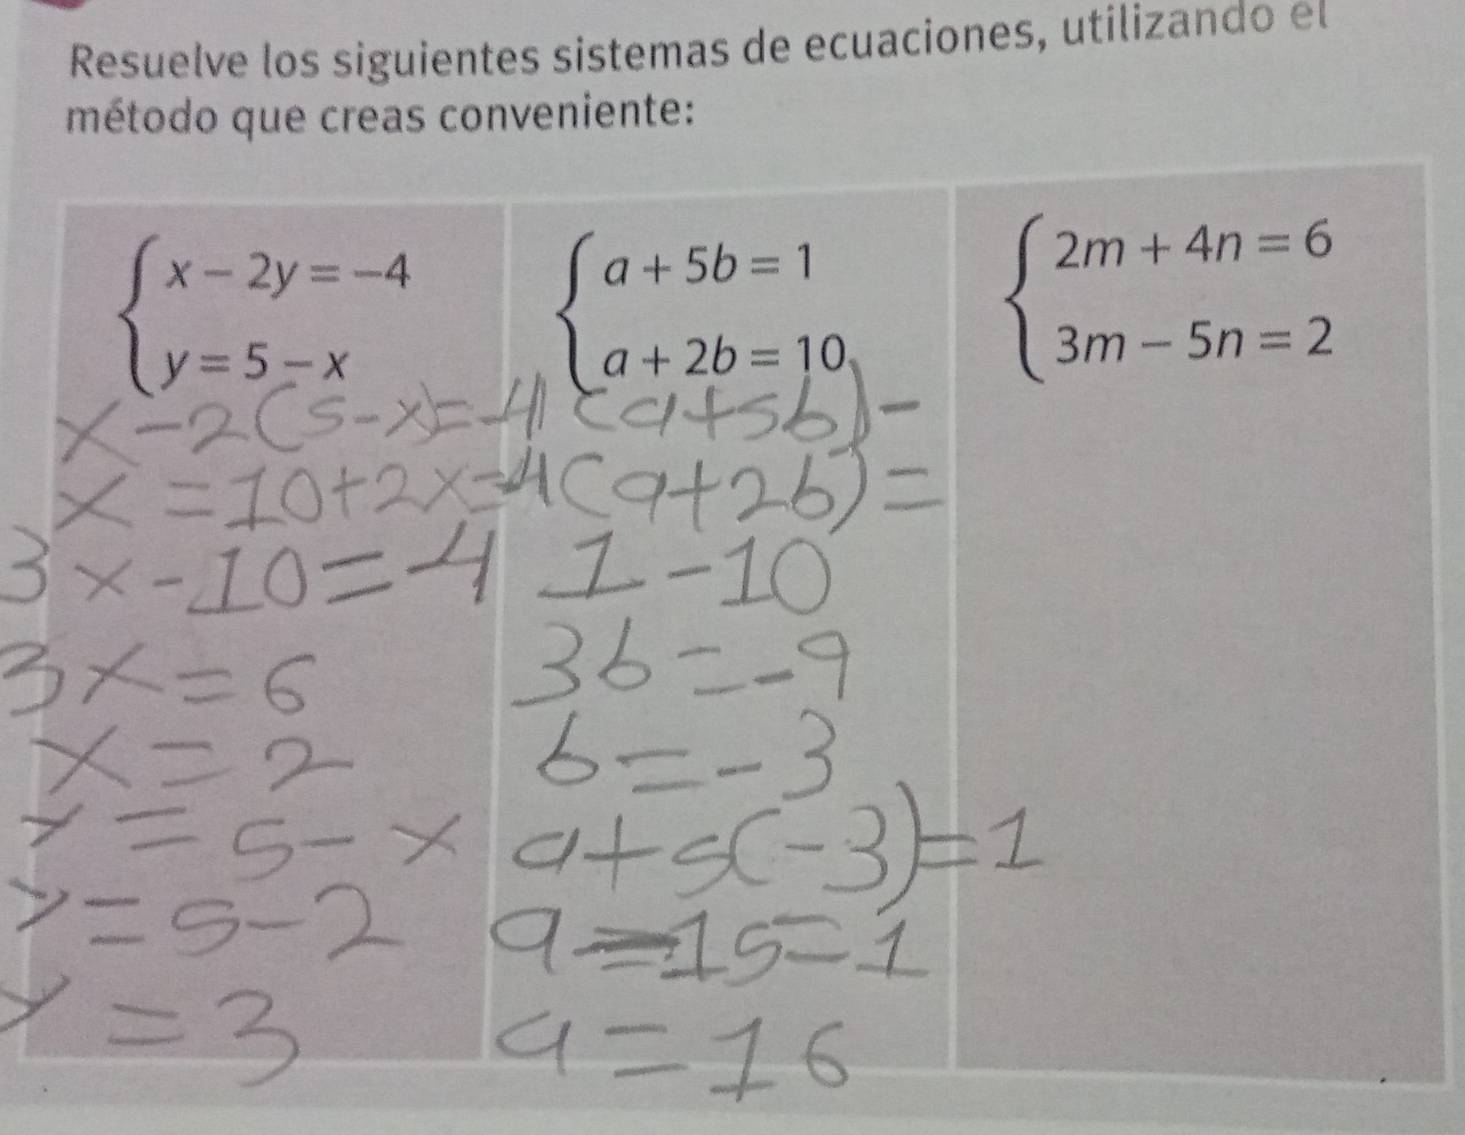 Resuelve los siguientes sistemas de ecuaciones, utilizando el
método que creas conveniente:
x - 2y = -4
y = 5 - x
x - 2(5 - x) = -4
x = 10 + 2x = -4
3x - 10 = -4
3x = 6
x = 2
y = 5 - x
y = 5 - 2
y = 3
a + 5b = 1
a + 2b = 10
(a + 5b) -
(a + 2b) =
1 - 10
3b = -9
b = -3
a + 5(-3) = 1
a - 15 = 1
a = 16
2m + 4n = 6
3m - 5n = 2